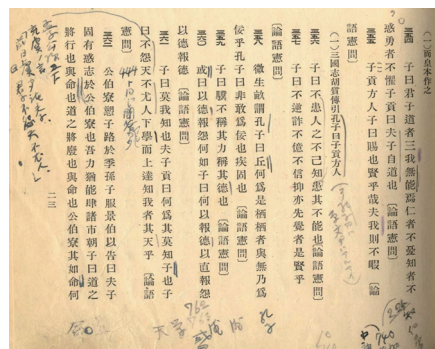 (一)而皇本作之
三五四 子曰君子道者三我無能焉仁者不憂知者不
惑勇者不懼子貢曰夫子自道也〔論語憲問〕
三五五 子貢方人子曰賜也賢乎哉夫我則不暇〔論
語憲問〕
(一)三國志胡質傳引孔子曰子貢方人
三五六 子曰不患人之不己知患其不能也〔論語憲問〕
三五七 子曰不逆詐不億不信抑亦先覺者是賢乎
〔論語憲問〕
三五八 微生畝謂孔子曰丘何為是栖栖者與無乃為
佞乎孔子曰非敢為佞也疾固也〔論語憲問〕
三五九 子曰驥不稱其力稱其德也〔論語憲問〕
三六〇 或曰以德報怨何如子曰何以報德以直報怨
以德報德〔論語憲問〕
三六一 子曰莫我知也夫子貢曰何為其莫知子也子
曰不怨天不尤人下學而上達知我者其天乎〔論語
憲問〕
三六二 公伯寮愬子路於季孫子服景伯以告曰夫子
固有惑志於公伯寮也吾力猶能肆諸市朝子曰道之
將行也與命也道之將廢也與命也公伯寮其如命何
二三
孔子
天学